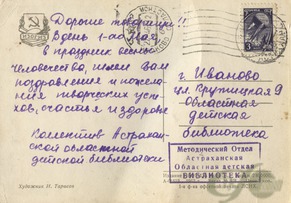 Дорогие товарищи!
В день 1-ого Мая
в праздник весны
человечества, шлем вам
поздравления и пожела-
ния творческих успе-
хов, счастья и здоровья
Коллектив Астрахан-
ской областной
детской библиотеки
Художник Н. Тарасов
г. Иваново
ул. Крутицкая 9
областная
детская
библиотека
Методический Отдел
Астраханская
Областная детская
БИБЛИОТЕКА